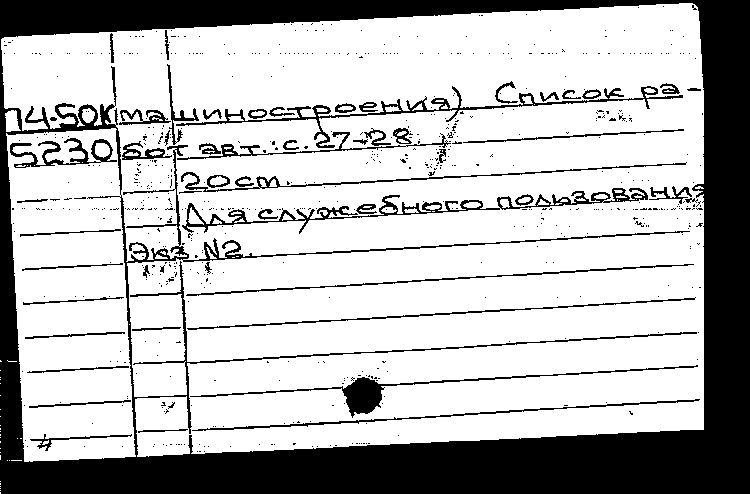 74-50K машиностроения) Список ра-
5230 бот авт.: с. 27-28.
20 cm.
Для служебного пользования
Экз. N2.
4